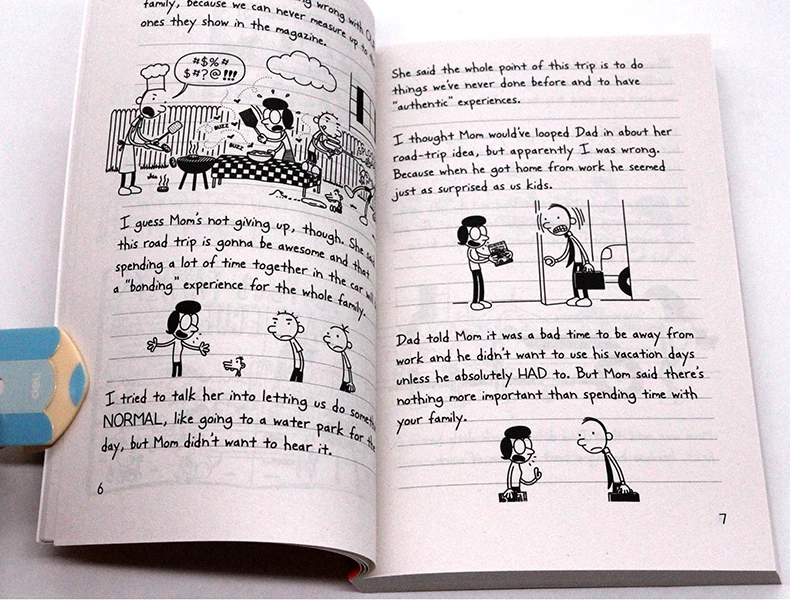 ng wrong with
family, because we can never measure up to
ones they show in the magazine.
#$%#
$#?@!!!
BUZZ
BUZZ
I guess Mom's not giving up, though. She
this road trip is gonna be awesome and that
spending a lot of time together in the car
a "bonding" experience for the whole family.
I tried to talk her into letting us do
NORMAL, like going to a water park for the
day, but Mom didn't want to hear it.
6
She said the whole point of this trip is to do
things we've never done before and to have
"authentic" experiences.
I thought Mom would've looped Dad in about her
road-trip idea, but apparently I was wrong.
Because when he got home from work he seemed
just as surprised as us kids.
Dad told Mom it was a bad time to be away from
work and he didn't want to use his vacation days
unless he absolutely HAD to. But Mom said there's
nothing more important than spending time with
your family.
7